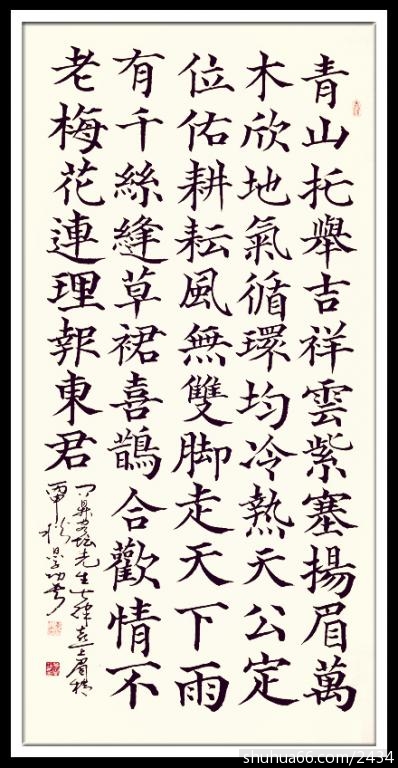 青山托舉吉祥雲紫塞揚眉萬
木欣地氣循環均冷熱天公定
位佑耕耘風無雙脚走天下雨
有千絲縫草裙喜鵲合歡情不
老梅花連理報東君
shuhua66.com/2434